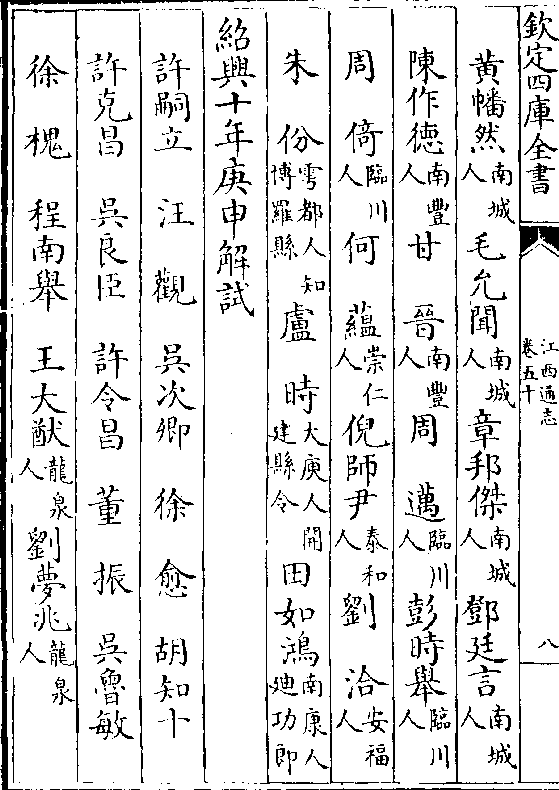 欽定四庫全書
江西通志
卷五十
八
黃幡然南城人 毛允聞南城人 章邦傑南城人 鄧廷言南城人
陳作德南豐人 甘晉南豐人 周邁臨川人 彭時舉臨川人
周倚臨川人 何蘊崇仁人 倪師尹泰和人 劉洽安福人
朱份雩都人知博羅縣 盧時大庾人開建縣令 田如鴻南康人廸功郎
紹興十年庚申解試
許嗣立 汪觀 吳次卿 徐愈 胡知十
許克昌 吳良臣 許令昌 董振 吳魯敏
徐槐 程南舉 王大猷龍泉人 劉夢兆龍泉人